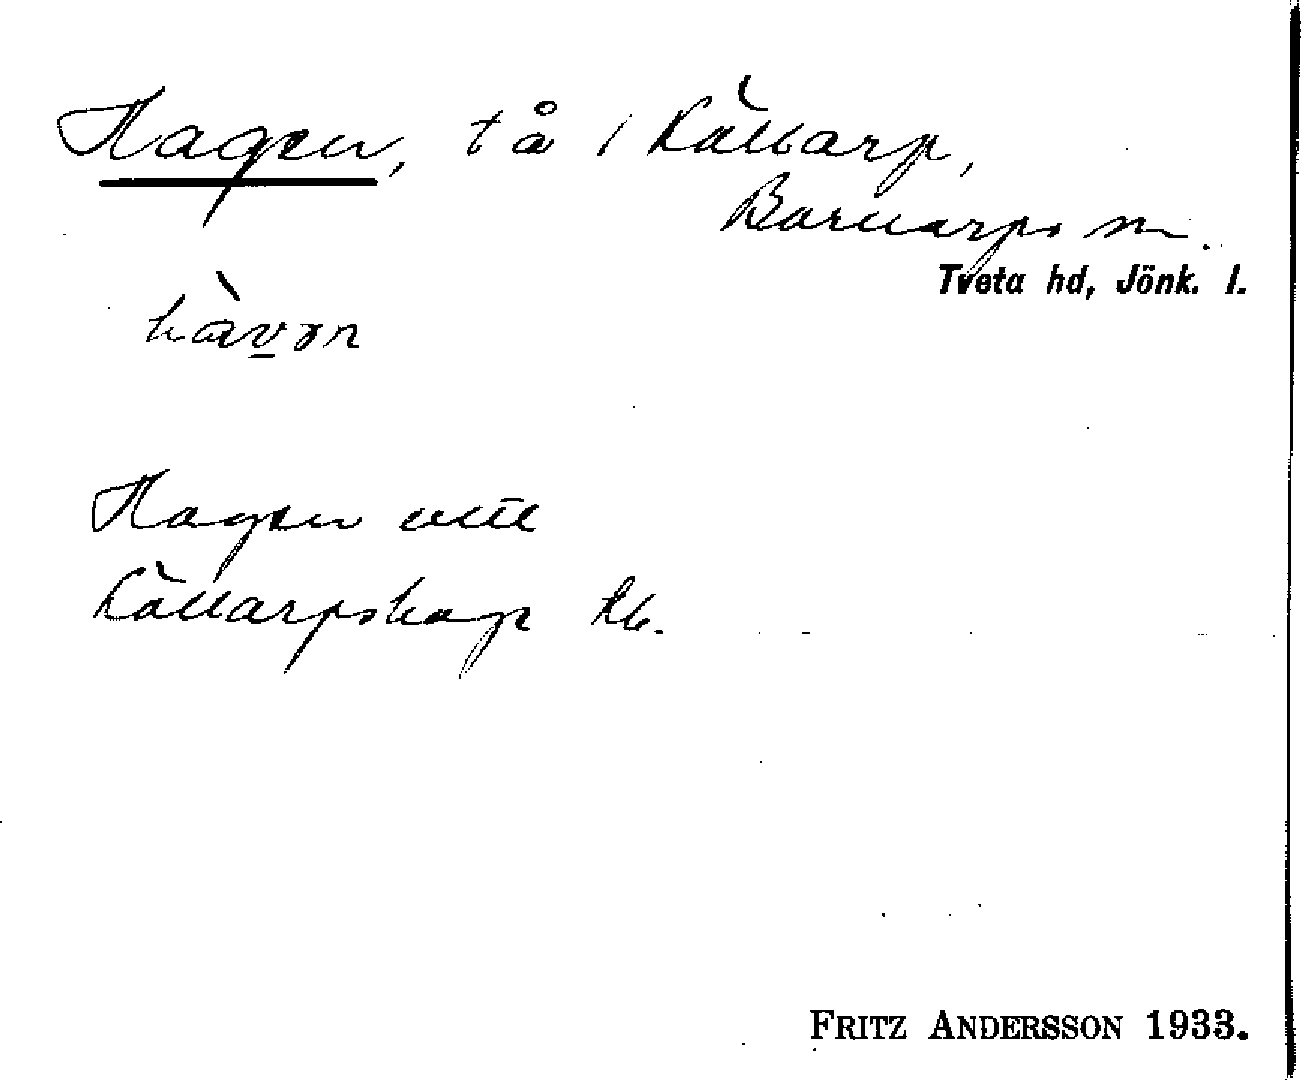 Hagen, tå i Källarp,
Barnarps sn.
Tveta hd, Jönk. l.
hàvən
Hagen
Källarpshage
FRITZ ANDERSSON 1933.